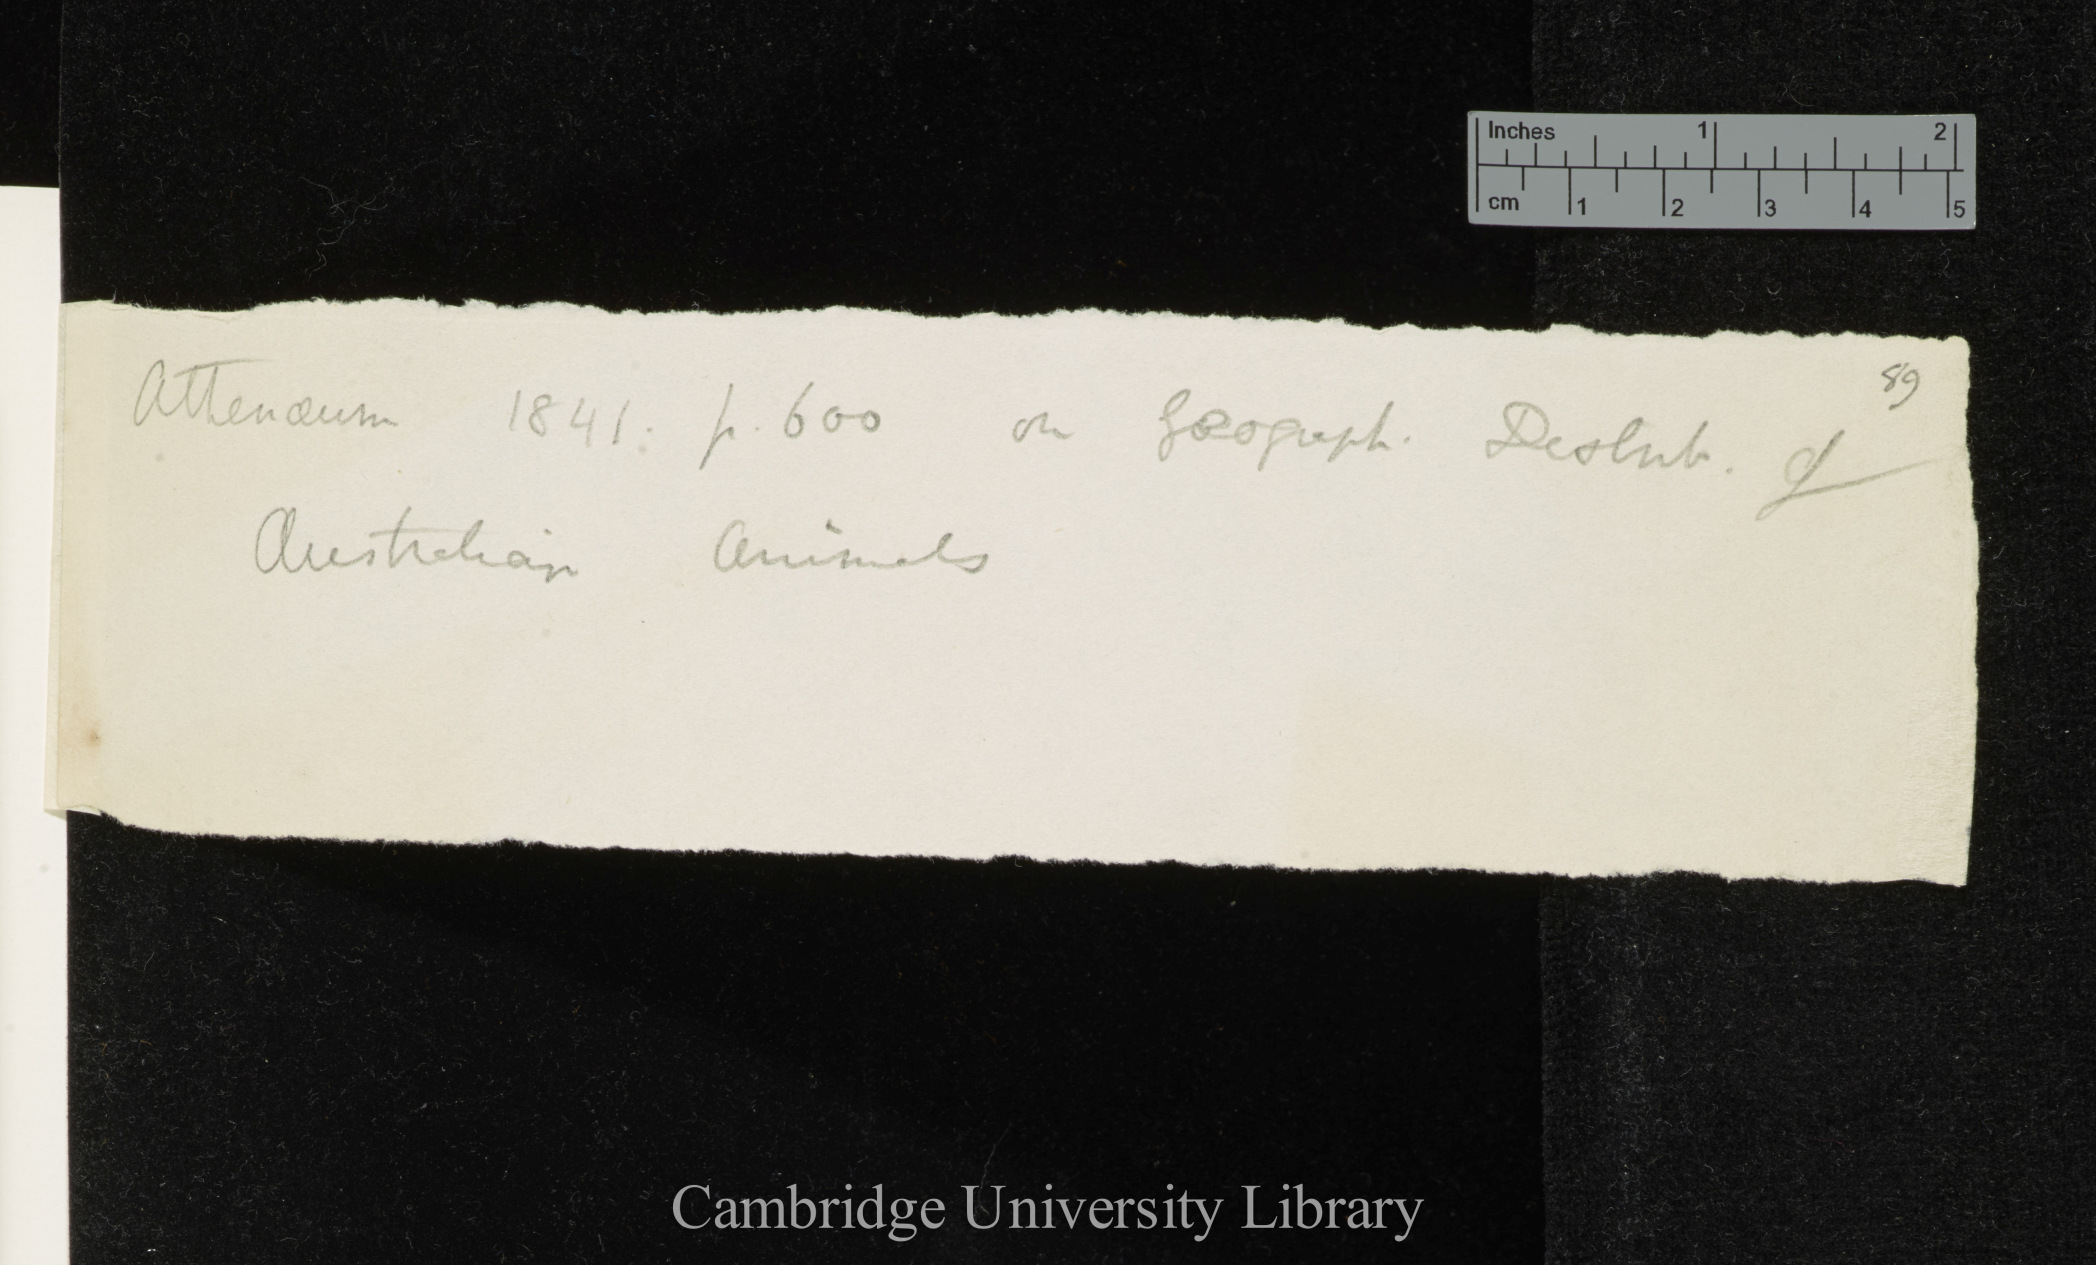 Inches 1 2
cm 1 2 3 4 5
89
Athenæum 1841. p. 600 on Geograph. Distrib. of
Australian Animals
Cambridge University Library